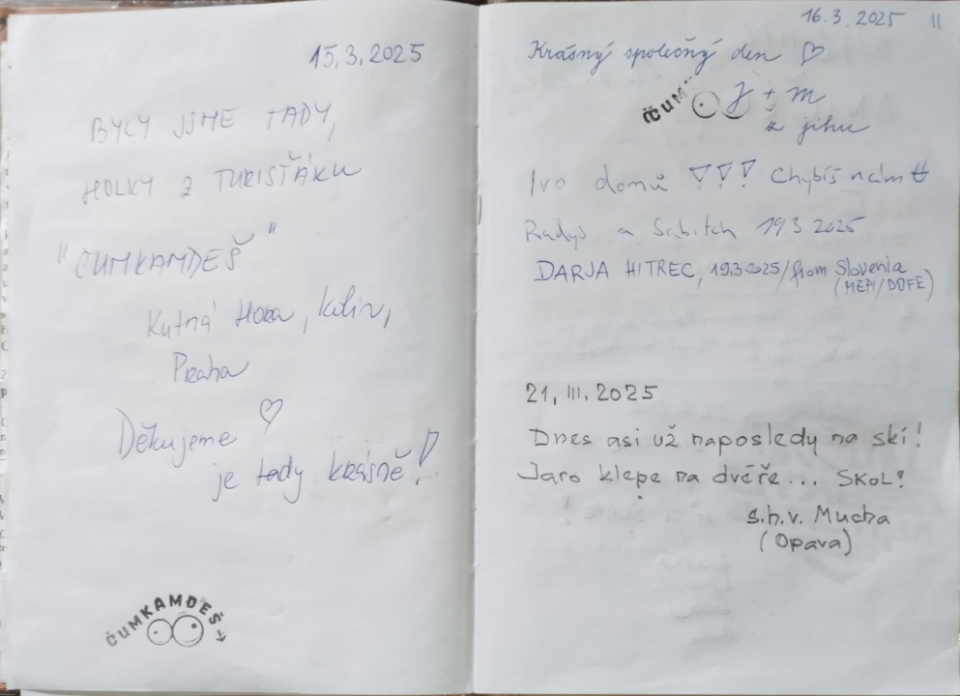 15.3.2025
BYLY JSME TADY,
HOLKY Z TURISŤÁKU
"ČUMKAMDEŠ"
Kutná Hora, Kolín,
Praha
Děkujeme ♡
je tady krásně!
ČUMKAMDEŠ
16.3.2025
Krásný společný den ♡
ČUM J + m
z jihu
Ivo domů !!! Chybíš nám
Radys a Sabitch 19.3.2025
DARJA HITREC, 19.3.2025/from Slovenia
(MEPI/DOFE)
21, III. 2025
Dnes asi už naposledy na ski!
Jaro klepe na dvéře... SKOL!
s.h.v. Mucha
(Opava)